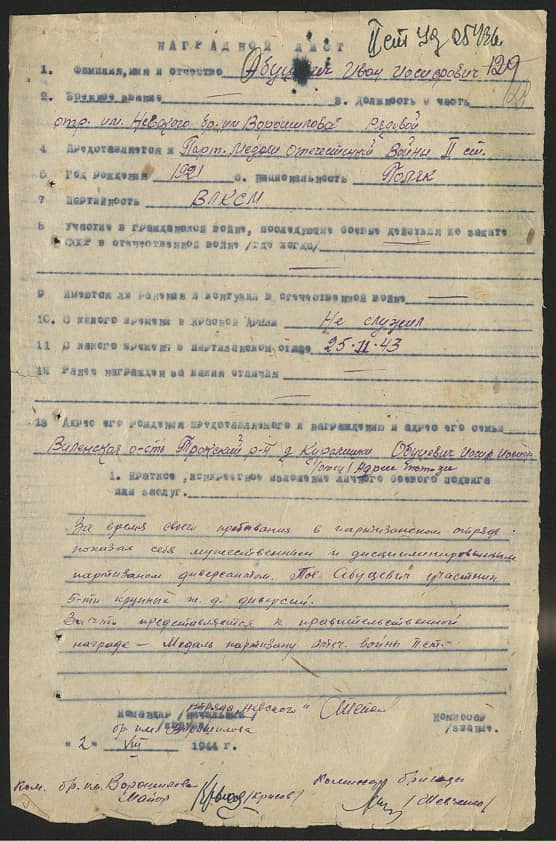 II ст Уд 25436
НАГРАДНОЙ ЛИСТ
129
1. Фамилия, имя и отчество Абуцевич Иван Иосифович
2. Военное звание — 3. Должность и часть
отр. им. Невского бр. им Ворошилова рядовой
4 Представляется к Парт. Медали Отечественной Войны II ст.
5 Год рождения 1921 6. Национальность Поляк
7 Партийность ВЛКСМ
8 Участие в гражданской войне, последующие боевые действия по защите
СССР в отечественной войне /где когда/ —
9 Имеются ли ранения и контузии в отечественной войне —
10. С какого времени в Красной Армии Не служил
11 С какого времени в партизанском отряде 25.II.43
12 Ранее награжден за какие отличия —
13 Адрес его рождения представляемого к награждению и адрес его семьи
Виленская о-сть Трокский р-н д. Обуцевич Иосиф
/отец/ Адрес тот-же
1. Краткое, конкретное изложение личного боевого подвига
или заслуг.
За время своего пребывания в партизанском отряде
показал себя мужественным и дисциплинированным
партизаном диверсантом. Тов. Абуцевич участник
5-ти крупных ж. д. диверсий.
За что представляется к правительственной
награде – Медаль партизану Отеч. войны II ст.
отряда Невского"
Командир /начальник/ Комиссар
бр. им. Ворошилова
/звание/ /звание/
"2" VIII 1944 г.
Ком. бр. им. Ворошилова Комиссар бригады
Майор